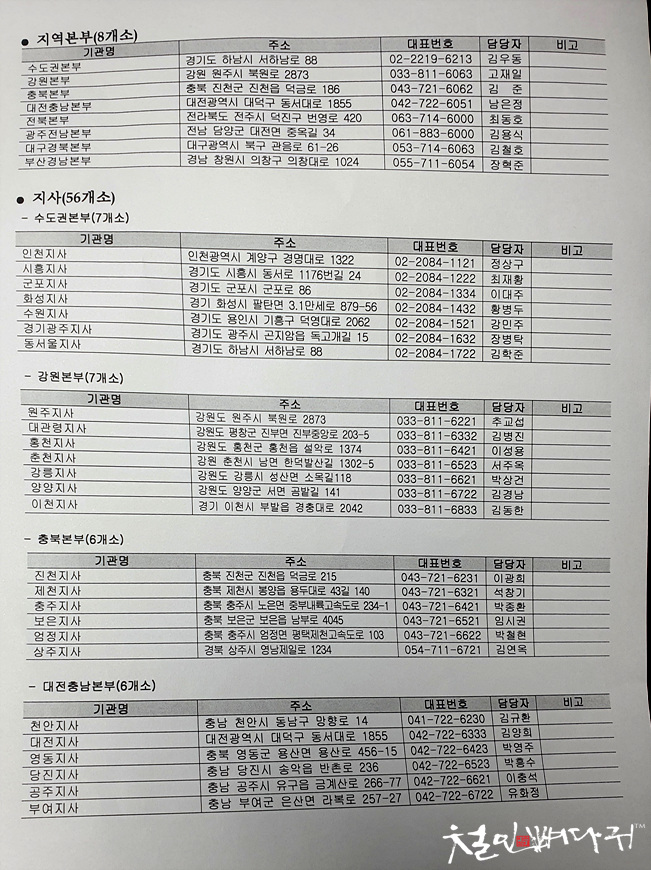 ● 지역본부(8개소)
기관명 주소 대표번호 담당자 비고
수도권본부 경기도 하남시 서하남로 88 02-2219-6213 김우동
강원본부 강원 원주시 북원로 2873 033-811-6063 고재일
충북본부 충북 진천군 진천읍 덕금로 186 043-721-6062 김 준
대전충남본부 대전광역시 대덕구 동서대로 1855 042-722-6051 남은정
전북본부 전라북도 전주시 덕진구 번영로 420 063-714-6000 최동호
광주전남본부 전남 담양군 대전면 중옥길 34 061-883-6000 김용식
대구경북본부 대구광역시 북구 관음로 61-26 053-714-6063 김철호
부산경남본부 경남 창원시 의창구 의창대로 1024 055-711-6054 장혁준
● 지사(56개소)
- 수도권본부(7개소)
기관명 주소 대표번호 담당자 비고
인천지사 인천광역시 계양구 경명대로 1322 02-2084-1121 정상구
시흥지사 경기도 시흥시 동서로 1176번길 24 02-2084-1222 최재황
군포지사 경기도 군포시 군포로 86 02-2084-1334 이대주
화성지사 경기 화성시 팔탄면 3.1만세로 879-56 02-2084-1432 황병두
수원지사 경기도 용인시 기흥구 덕영대로 2062 02-2084-1521 강민주
경기광주지사 경기도 광주시 곤지암읍 독고개길 15 02-2084-1632 장병탁
동서울지사 경기도 하남시 서하남로 88 02-2084-1722 김학준
- 강원본부(7개소)
기관명 주소 대표번호 담당자 비고
원주지사 강원도 원주시 북원로 2873 033-811-6221 추교섭
대관령지사 강원도 평창군 진부면 진부중앙로 203-5 033-811-6332 김병진
홍천지사 강원도 홍천군 홍천읍 설악로 1374 033-811-6421 이성용
춘천지사 강원 춘천시 남면 한덕발산길 1302-5 033-811-6523 서주옥
강릉지사 강원도 강릉시 성산면 소목길118 033-811-6621 박상건
양양지사 강원도 양양군 서면 곰밭길 141 033-811-6722 김경남
이천지사 경기 이천시 부발읍 경충대로 2042 033-811-6833 김동한
- 충북본부(6개소)
기관명 주소 대표번호 담당자 비고
진천지사 충북 진천군 진천읍 덕금로 215 043-721-6231 이광희
제천지사 충북 제천시 봉양읍 용두대로 43길 140 043-721-6321 석창기
충주지사 충북 충주시 노은면 중부내륙고속도로 234-1 043-721-6421 박종환
보은지사 충북 보은군 보은읍 남부로 4045 043-721-6521 임시권
엄정지사 충북 충주시 엄정면 평택제천고속도로 103 043-721-6622 박철현
상주지사 경북 상주시 영남제일로 1234 054-711-6721 김연옥
- 대전충남본부(6개소)
기관명 주소 대표번호 담당자 비고
천안지사 충남 천안시 동남구 망향로 14 041-722-6230 김규환
대전지사 대전광역시 대덕구 동서대로 1855 042-722-6333 김양희
영동지사 충북 영동군 용산면 용산로 456-15 042-722-6423 박영주
당진지사 충남 당진시 송악읍 반촌로 236 042-722-6523 박흥수
공주지사 충남 공주시 유구읍 금계산로 266-77 042-722-6621 이충석
부여지사 충남 부여군 은산면 라복로 257-27 042-722-6722 유화정
철민뼈다귀™